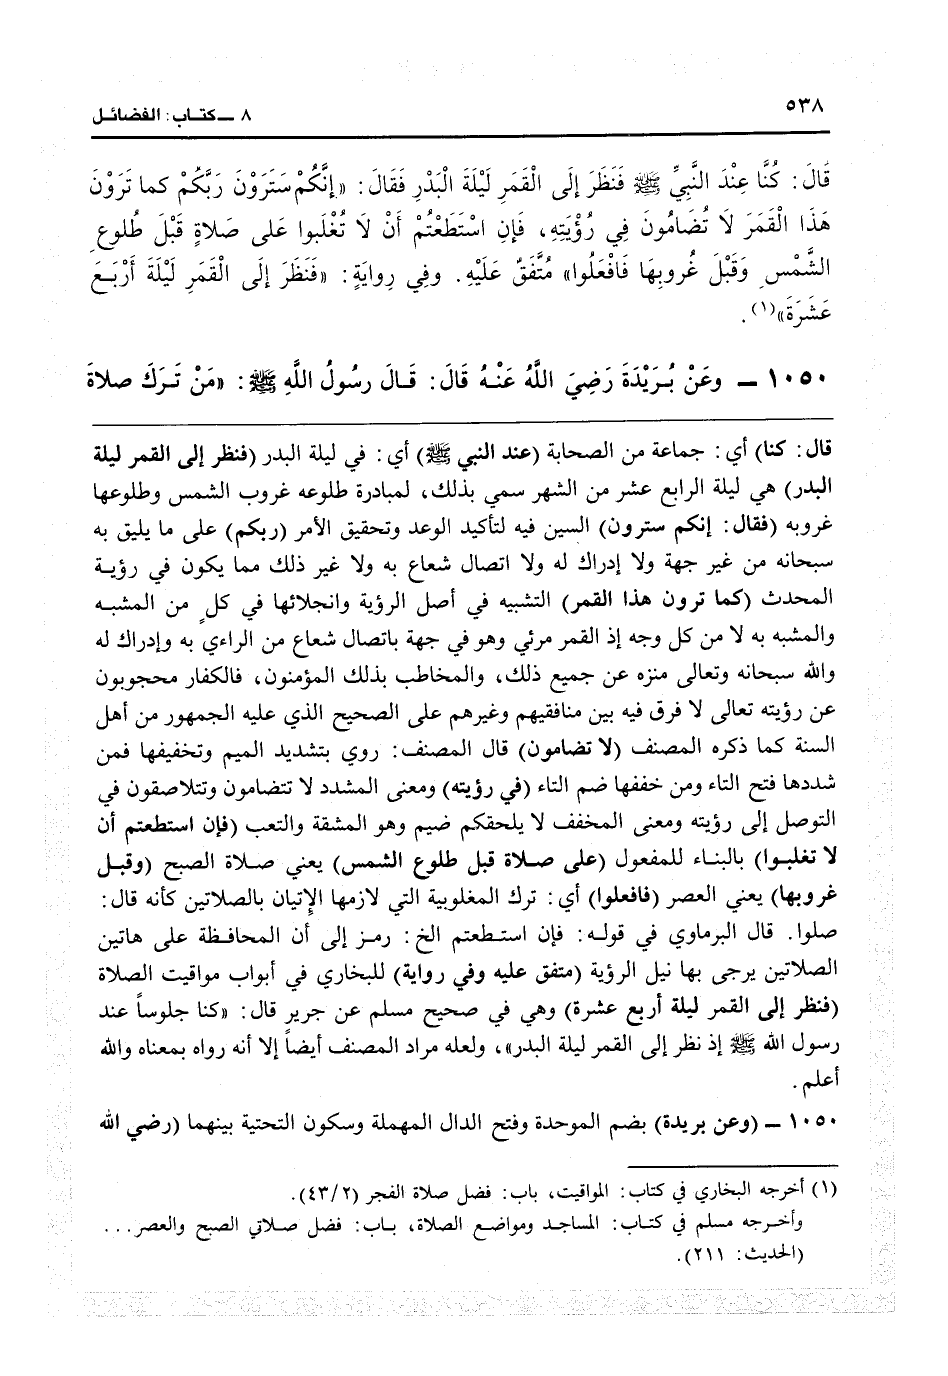 ٥٣٨
٨ ــ كتـاب : الفضائـل
قَالَ : كُنَّا عِنْدَ النَّبِيِّ ﷺ فَنَظَرَ إِلَى الْقَمَرِ لَيْلَةَ الْبَدْرِ فَقَالَ : «إِنَّكُمْ سَتَرَوْنَ رَبَّكُمْ كما تَرَوْنَ
هَذَا الْقَمَرَ لَا تُضَامُونَ فِي رُؤْيَتِهِ ، فَإِنِ اسْتَطَعْتُمْ أَنْ لَا تُغْلَبوا عَلى صَلاةٍ قَبْلَ طُلوعِ
الشَّمْسِ وَقَبْلَ غُروبِهَا فَافْعَلُوا» مُتَّفَقٌ عَلَيْهِ . وفِي رِوايَةٍ : «فَنَظَرَ إِلَى الْقَمَرِ لَيْلَةَ أَرْبَعَ
عَشَرَةَ»(١) .
١٠٥٠ ــ وعَنْ بُرَيْدَةَ رَضِيَ اللَّهُ عَنْهُ قَالَ : قَـالَ رسُولُ اللَّهِ ﷺ : «مَنْ تَرَكَ صلاةَ
قال : كنا) أي : جماعة من الصحابة (عند النبي ﷺ) أي : في ليلة البدر (فنظر إلى القمر ليلة
البدر) هي ليلة الرابع عشر من الشهر سمي بذلك، لمبادرة طلوعه غروب الشمس وطلوعها
غروبه (فقال : إنكم سترون) السين فيه لتأكيد الوعد وتحقيق الأمر (ربكم) على ما يليق به
سبحانه من غير جهة ولا إدراك له ولا اتصال شعاع به ولا غير ذلك مما يكون في رؤيـة
المحدث (كما ترون هذا القمر) التشبيه في أصل الرؤية وانجلائها في كلٍ من المشبـه
والمشبه به لا من كل وجه إذ القمر مرئي وهو في جهة باتصال شعاع من الراءي به وإدراك له
والله سبحانه وتعالى منزه عن جميع ذلك، والمخاطب بذلك المؤمنون، فالكفار محجوبون
عن رؤيته تعالى لا فرق فيه بين منافقيهم وغيرهم على الصحيح الذي عليه الجمهور من أهل
السنة كما ذكره المصنف (لا تضامون) قال المصنف : روي بتشديد الميم وتخفيفها فمن
شددها فتح التاء ومن خففها ضم التاء (في رؤيته) ومعنى المشدد لا تتضامون وتتلاصقون في
التوصل إلى رؤيته ومعنى المخفف لا يلحقكم ضيم وهو المشقة والتعب (فإن استطعتم أن
لا تغلبـوا) بالبنـاء للمفعول (على صـلاة قبل طلوع الشمس) يعني صـلاة الصبح (وقبـل
غروبها) يعني العصر (فافعلوا) أي : ترك المغلوبية التي لازمها الإتيان بالصلاتين كأنه قال :
صلوا . قال البرماوي في قولـه : فإن استـطعتم الخ : رمـز إلى أن المحافـظة على هاتين
الصلاتين يرجى بها نيل الرؤية (متفق عليه وفي رواية) للبخاري في أبواب مواقيت الصلاة
(فنظر إلى القمر ليلة أربع عشرة) وهي في صحيح مسلم عن جرير قال : «كنا جلوساً عند
رسول الله ﷺ إذ نظر إلى القمر ليلة البدر»، ولعله مراد المصنف أيضاً إلا أنه رواه بمعناه والله
أعلم .
١٠٥٠ ــ (وعن بريدة) بضم الموحدة وفتح الدال المهملة وسكون التحتية بينهما (رضي الله
(١) أخرجه البخاري في كتاب : المواقيت، باب : فضل صلاة الفجر (٤٣/٢) .
وأخـرجه مسلم في كتـاب : المساجـد ومواضـع الصلاة، بـاب : فضل صـلاتي الصبح والعصر . . .
(الحديث : ٢١١) .